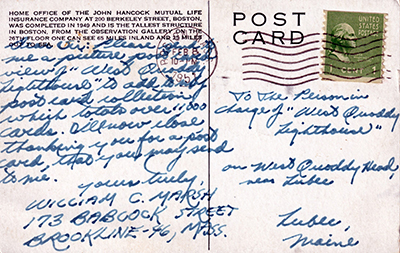 HOME OFFICE OF THE JOHN HANCOCK MUTUAL LIFE
INSURANCE COMPANY AT 200 BERKELEY STREET, BOSTON,
WAS COMPLETED IN 1949 AND IS THE TALLEST STRUCTURE
IN BOSTON. FROM THE OBSERVATION GALLERY ON THE
26TH FLOOR ONE CAN SEE 65 MILES INLAND AND 25 MILES
OUT TO SEA.
Please
me a picture post
view of "West
Lighthouse" to add to my
post card collection
which totals over 11,000
cards. I'll now close
thanking you for a post
card, that you may send
to me.
Yours truly,
WILLIAM C. MARSH
173 BABCOCK STREET
BROOKLINE-46, MASS.
POST
CARD
FEB
195
To The Person in
charge of "West Quoddy
Lighthouse"
on West Quoddy Head
near Lubec
Lubec,
Maine